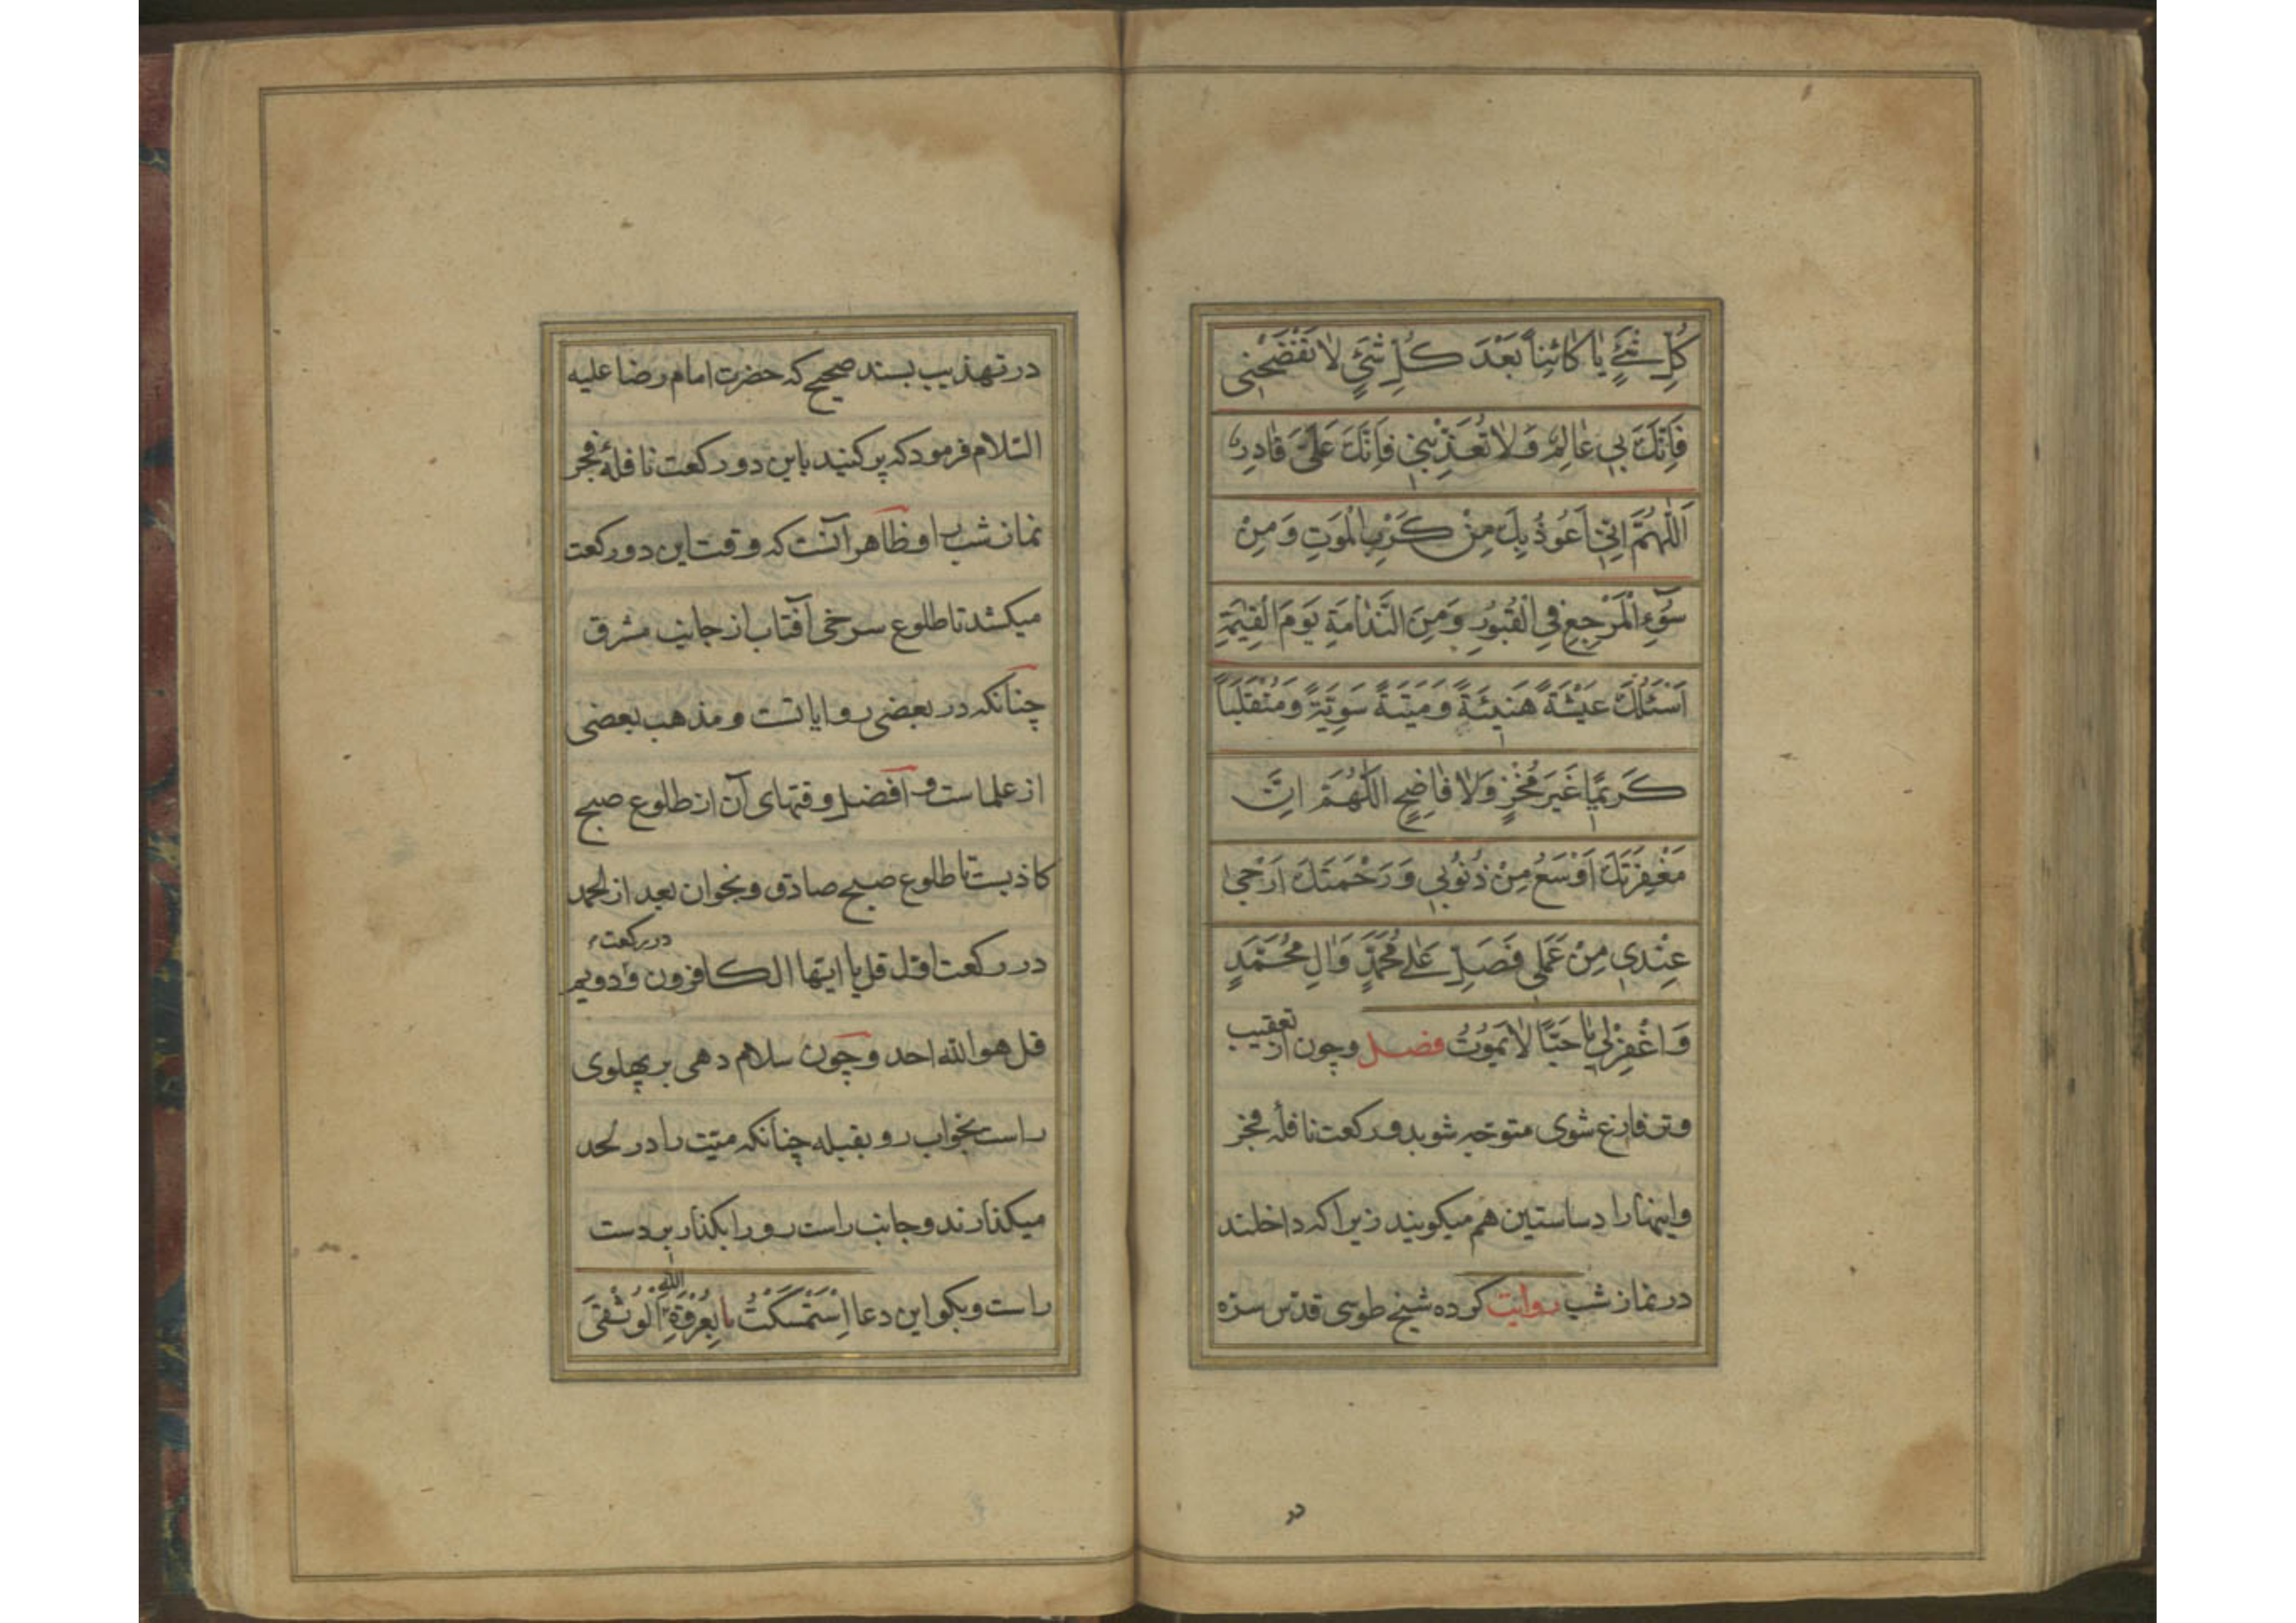 كُلِّ شَيْءٍ يَا كَائِنًا بَعْدَ كُلِّ شَيْءٍ لَا تَفْضَحْنِي
فَاِنَّكَ بِي عَالِمٌ وَلَا تُعَذِّبْنِي فَاِنَّكَ عَلَيَّ قَادِرٌ
اَللّٰهُمَّ اِنِّي اَعُوذُ بِكَ مِنْ كَرْبِ الْمَوْتِ وَمِنْ
سُوءِ الْمَرْجِعِ فِي الْقُبُورِ وَمِنَ النَّدَامَةِ يَوْمَ الْقِيٰمَةِ
اَسْئَلُكَ عَيْشَةً هَنِيئَةً وَمَيْتَةً سَوِيَّةً وَمُنْقَلَبًا
كَرِيمًا غَيْرَ مُخْزٍ وَلَا فَاضِحٍ اَللّٰهُمَّ اِنَّ
مَغْفِرَتَكَ اَوْسَعُ مِنْ ذُنُوبِي وَرَحْمَتَكَ اَرْجٰى
عِنْدِي مِنْ عَمَلِي فَصَلِّ عَلٰى مُحَمَّدٍ وَاٰلِ مُحَمَّدٍ
وَاغْفِرْلِي يَا حَيًّا لَا يَمُوتُ فصل وچون از تعقيب
وتر فارغ شوی متوجه شو بدو رکعت نافلهٔ فجر
واینها را دساستین هم میکویند زیرا که داخلند
در نماز شب روایت کرده شیخ طوسی قدس سره
در
در تهذیب بسند صحیح که حضرت امام رضا علیه
السلام فرمود که پر کنید باین دو رکعت نافلهٔ فجر
نماز شب را وظاهر آنست که وقت این دو رکعت
میکشد تا طلوع سرخی آفتاب از جانب مشرق
چنانکه در بعضی روایاتست ومذهب بعضی
از علماست وافضل وقتهای آن از طلوع صبح
کاذبست تا طلوع صبح صادق وبخوان بعد از الحمد
در رکعت اول قل یا ایها الکافرون و در رکعت دویم
قل هو الله احد وچون سلام دهی بر پهلوی
راست بخواب رو بقبله چنانکه میت را در لحد
میکذارند وجانب راست رو را بکذار بر دست
راست وبکو این دعا اِسْتَمْسَكْتُ بِعُرْوَةِ اللّٰهِ الْوُثْقٰى